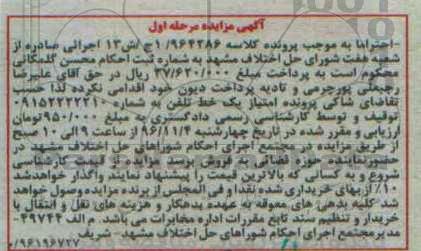 آگهی مزایده مرحله اول
-احتراما به موجب پرونده کلاسه ۹۶۴۲۸۶/ ۱ج/ش۱۳ اجرائی صادره از
شعبه هفت شورای حل اختلاف مشهد به شماره ثبت احکام محسن گلمکانی
محکوم است به پرداخت مبلغ ۳۷/۶۲۰/۰۰۰ ریال در حق آقای علیرضا
رجبعلی پورچرمی و تادیه پرداخت دیون خود اقدامی نکرده لذا حسب
تقاضای شاکی پرونده امتیاز یک خط تلفن به شماره ۰۹۱۵۲۲۲۲۲۱۰
توقیف و توسط کارشناسی رسمی دادگستری به مبلغ ۹۵۰/۰۰۰تومان
ارزیابی و مقرر شده در تاریخ چهارشنبه ۹۶/۱۱/۴ از ساعت ۹ الی ۱۰ صبح
از طریق مزایده در مجتمع اجرای احکام شوراهای حل اختلاف مشهد در
حضورنماینده حوزه قضائی به فروش برسد مزایده از قیمت کارشناسی
شروع و به کسانی که بالاترین قیمت را پیشنهاد نمایند واگذار خواهدشد
۱۰٪ ازبهای خریداری شده نقدا و فی المجلس از برنده مزایده وصول خواهد
شد کلیه بدهی های معوقه به عهده بدهکار و هزینه های نقل و انتقال با
خریدار و تنظیم سند تابع مقررات اداره مخابرات می باشد. م الف ۴۹۷۴۴
مدیرمجتمع اجرای احکام شوراهای حل اختلاف مشهد - شریف
/۹۶۱۹۶۷۲۷